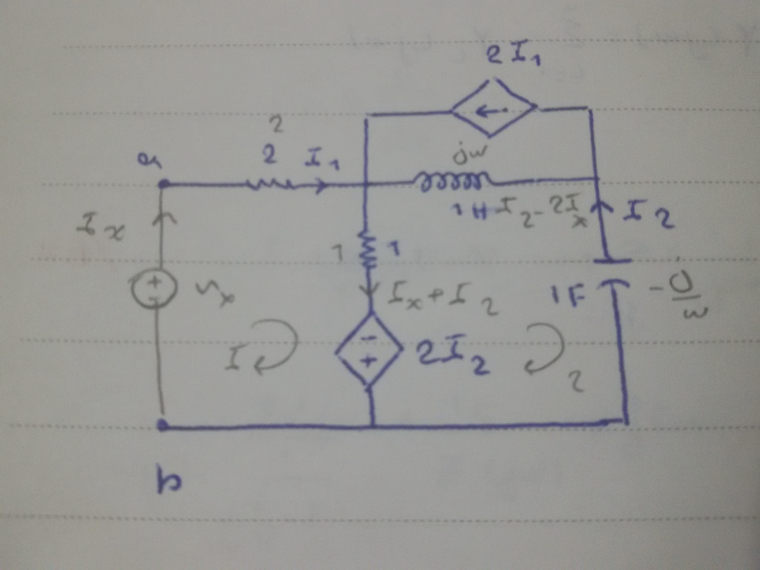 2I₁
2
a
2
I₁
jω
1H
I₂-2Iₓ
I₂
Iₓ
+
-
Vₓ
1
1
Iₓ+I₂
1F
-j/ω
I
-
+
2I₂
2
b